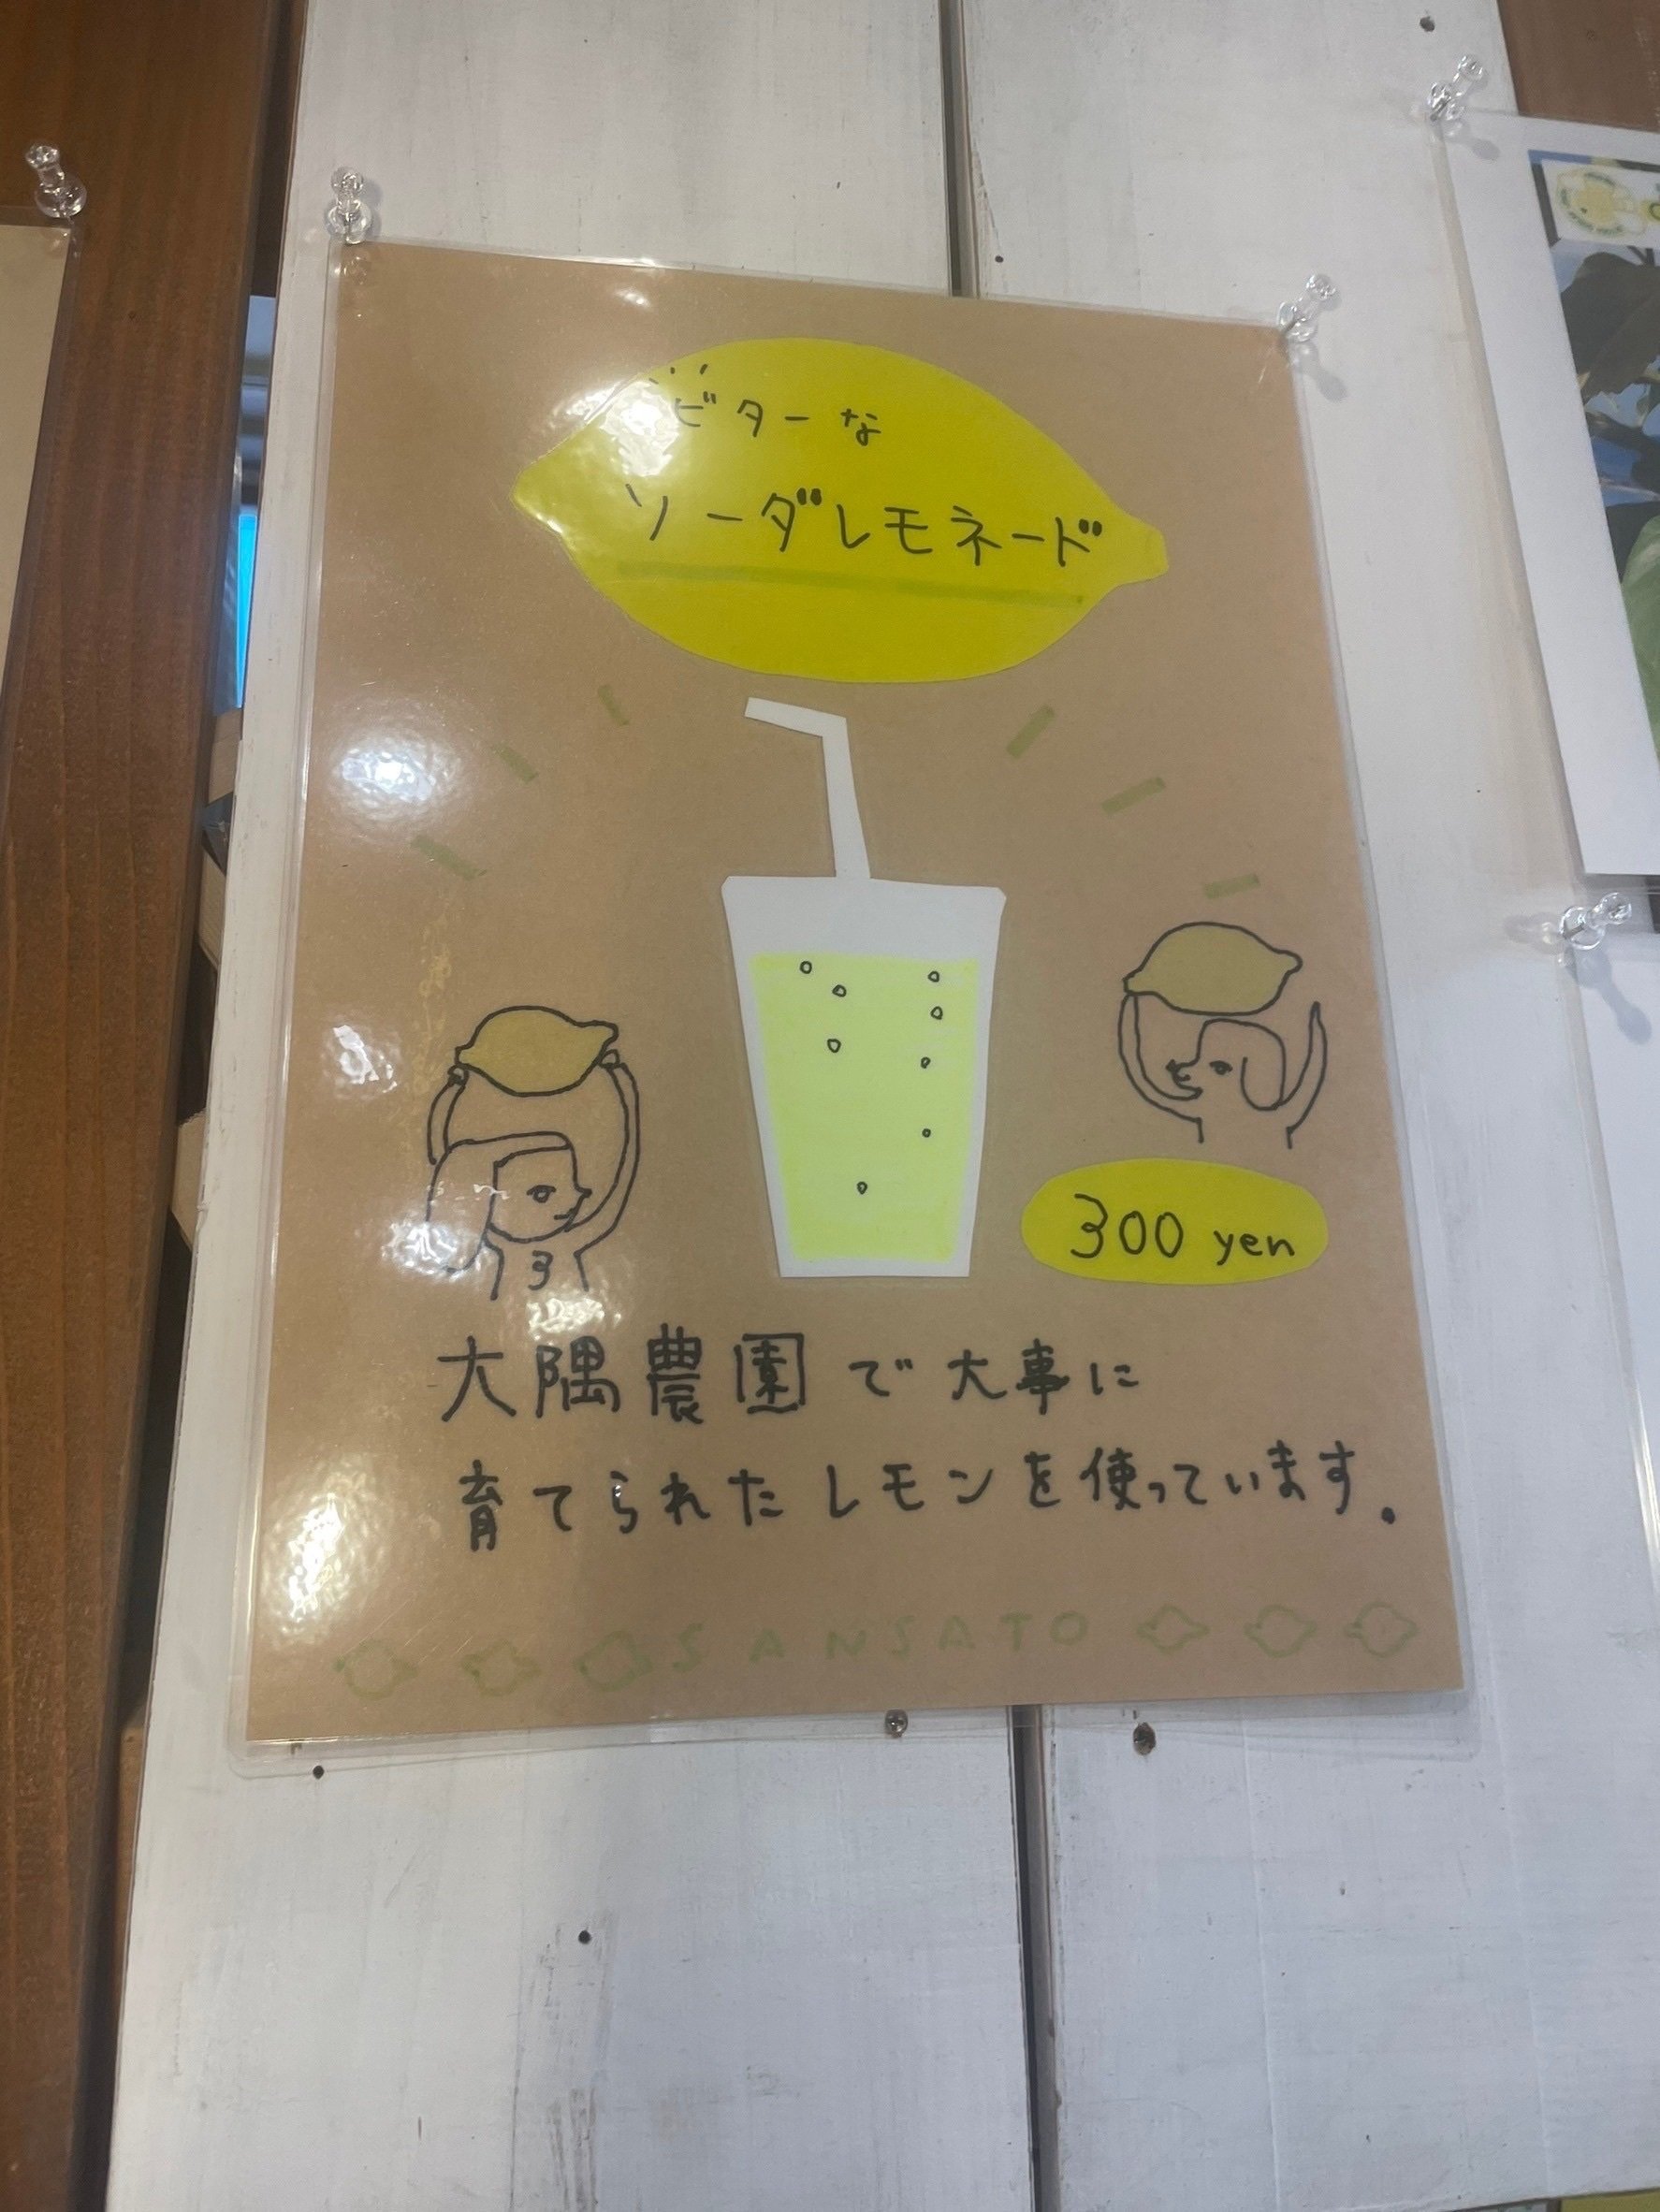 ビターな
ソーダレモネード
300 yen
大隅農園で大事に
育てられたレモンを使っています.
SANSATO